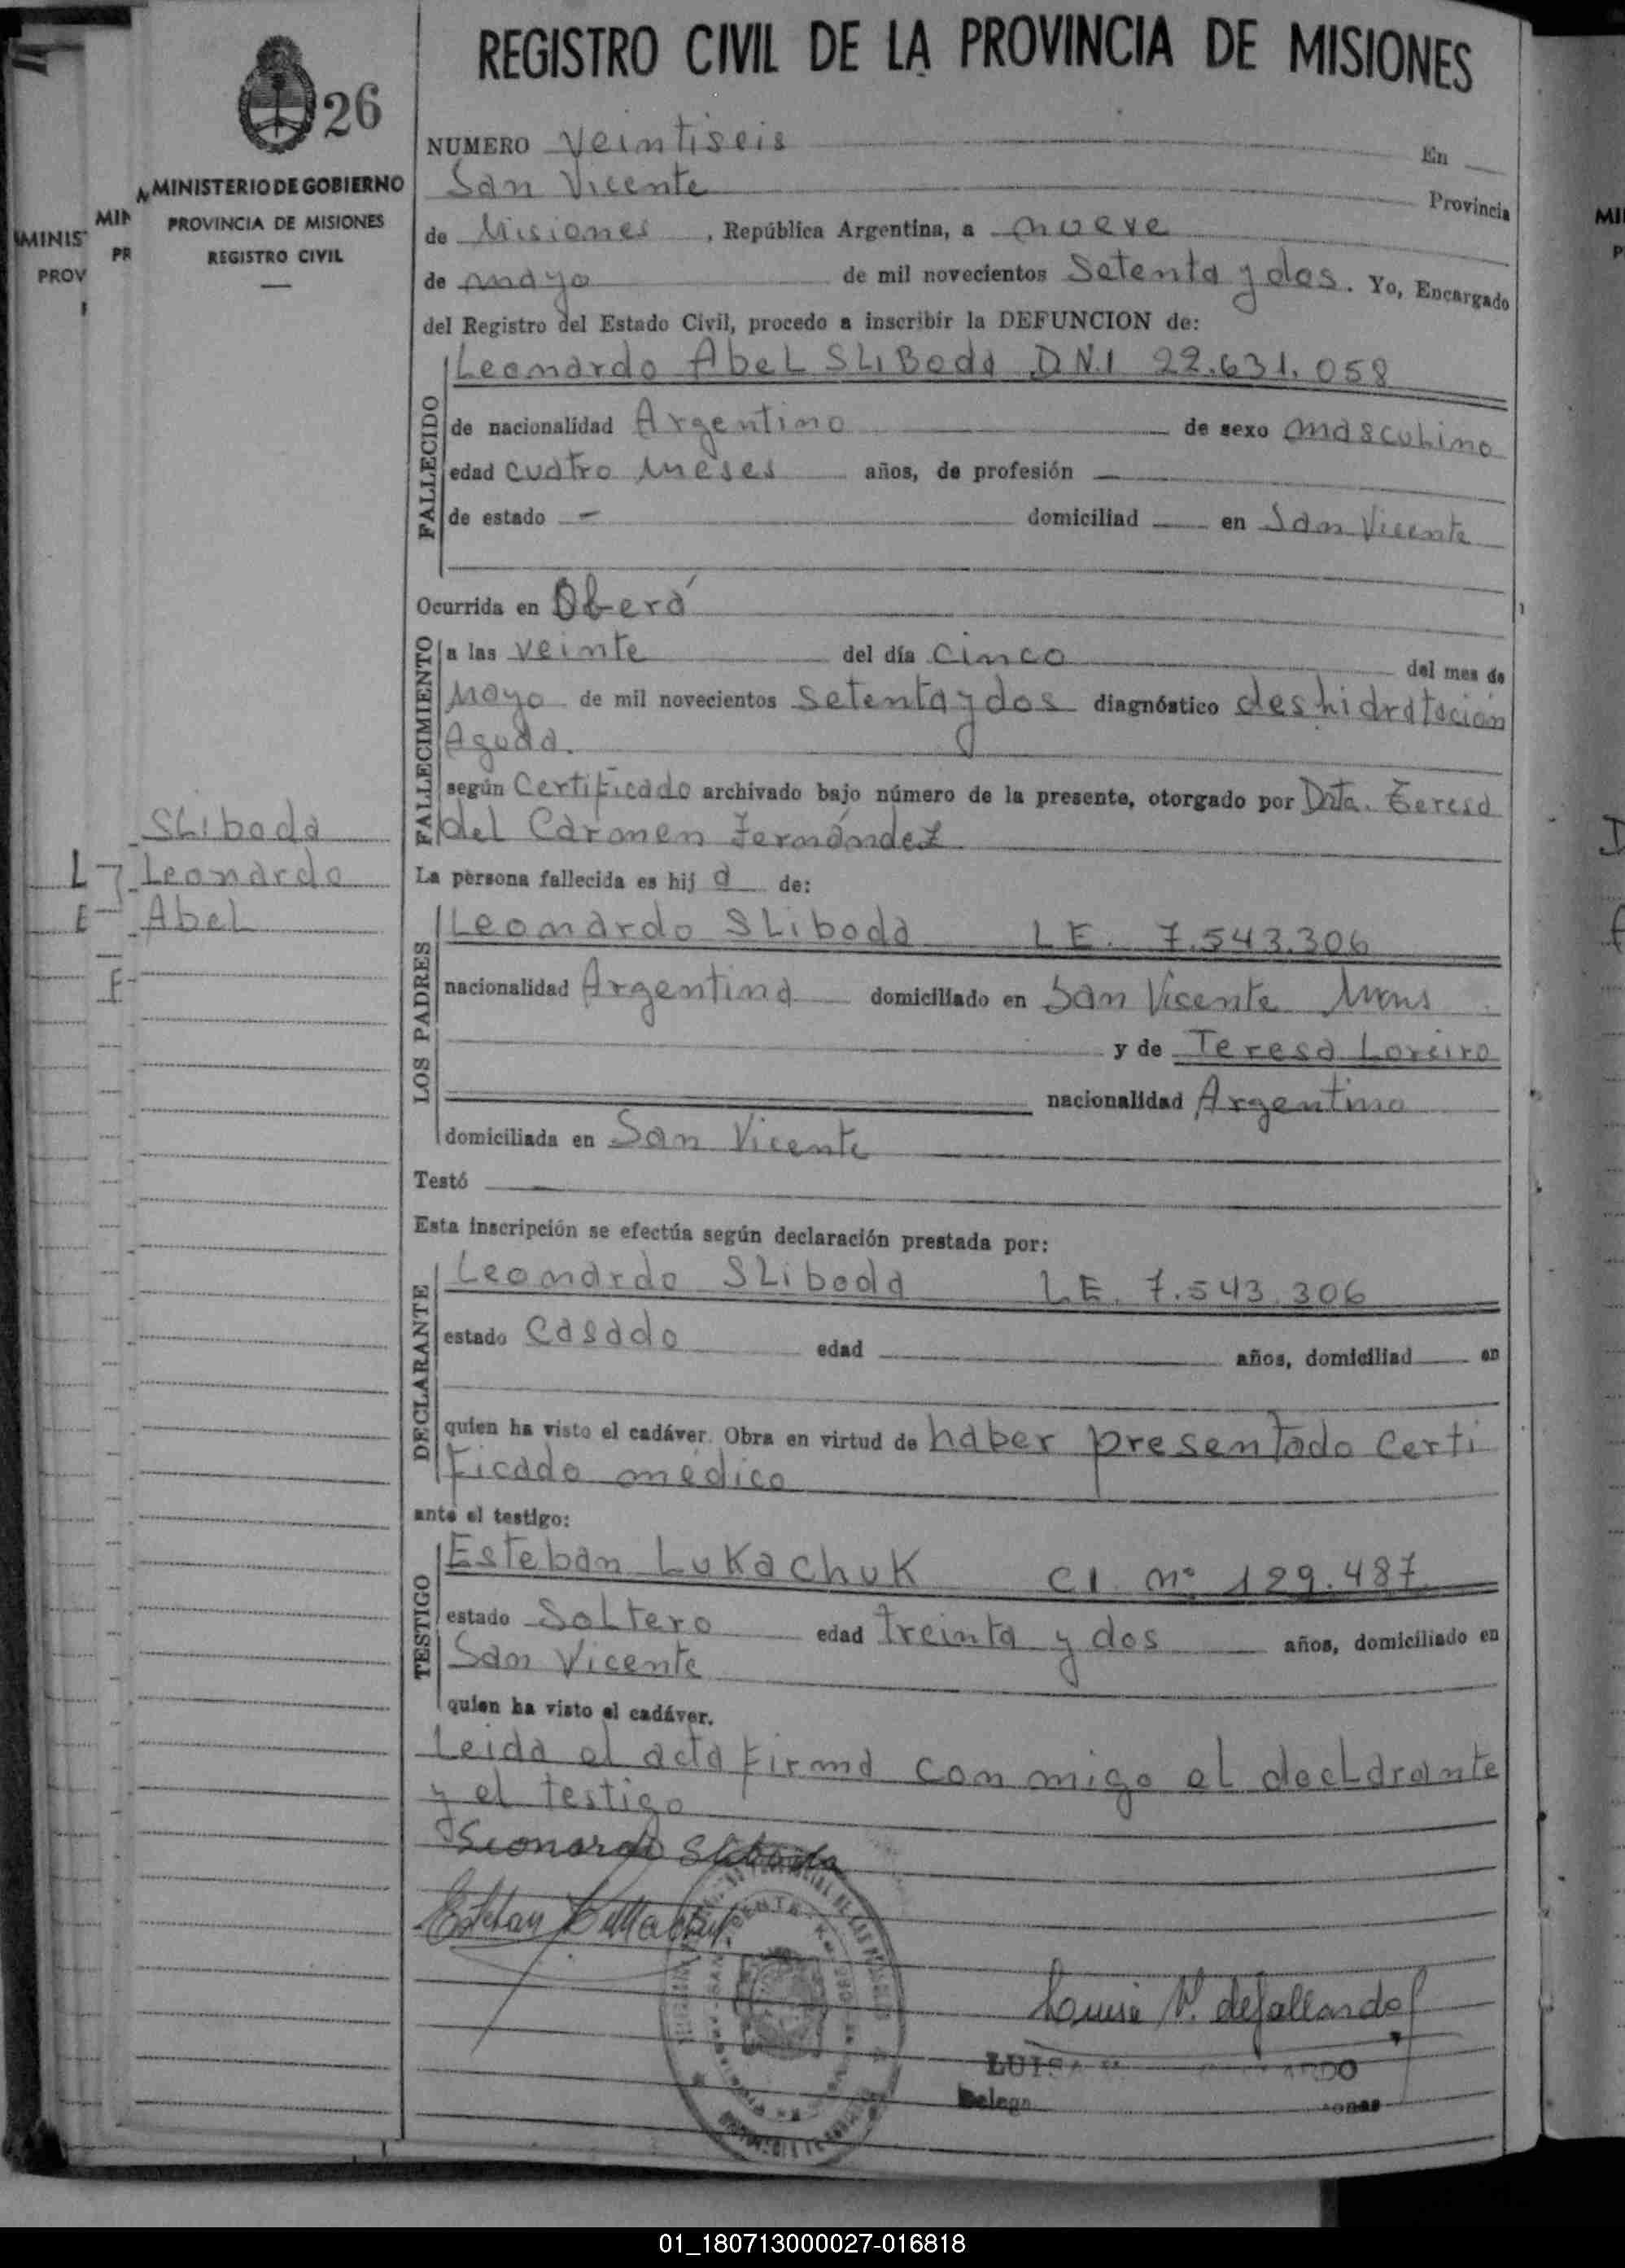 REGISTRO CIVIL DE LA PROVINCIA DE MISIONES
26
MINISTERIO DE GOBIERNO
PROVINCIA DE MISIONES
REGISTRO CIVIL
NUMERO Veintiseis En
San Vicente Provincia
de Misiones, República Argentina, a nueve
de mayo de mil novecientos Setenta y dos. Yo, Encargado
del Registro del Estado Civil, procedo a inscribir la DEFUNCION de:
FALLECIDO
Leonardo Abel SLiBoda D.N.I 22.631.058
de nacionalidad Argentino de sexo masculino
edad cuatro meses años, de profesión
de estado - domiciliad en San Vicente
Ocurrida en Oberá
FALLECIMIENTO
a las veinte del día cinco del mes de
Mayo de mil novecientos setenta y dos diagnóstico deshidratación
Aguda.
según Certificado archivado bajo número de la presente, otorgado por Drta. Teresa
del Carmen Fernández
Sliboda
Leonardo
Abel
La persona fallecida es hij o de:
LOS PADRES
Leonardo Sliboda L E. 7.543.306
nacionalidad Argentina domiciliado en San Vicente Mnes
y de Teresa Loreiro
nacionalidad Argentina
domiciliada en San Vicente
Testó
Esta inscripción se efectúa según declaración prestada por:
DECLARANTE
Leonardo Sliboda L E. 7.543.306
estado Casado edad años, domiciliad en
quien ha visto el cadáver. Obra en virtud de haber presentado Certi
ficado médico
ante el testigo:
TESTIGO
Esteban Lukachuk C I. nº 129.487
estado Soltero edad treinta y dos años, domiciliado en
San Vicente
quien ha visto el cadáver.
Leida el acta firma conmigo el declarante
y el testigo
Leonardo Sliboda
Esteban
Luisa de Gallardo
LUISA
01_180713000027-016818